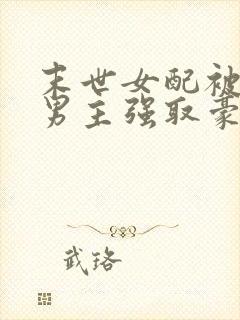 末世女配被
男主强取豪
武珞